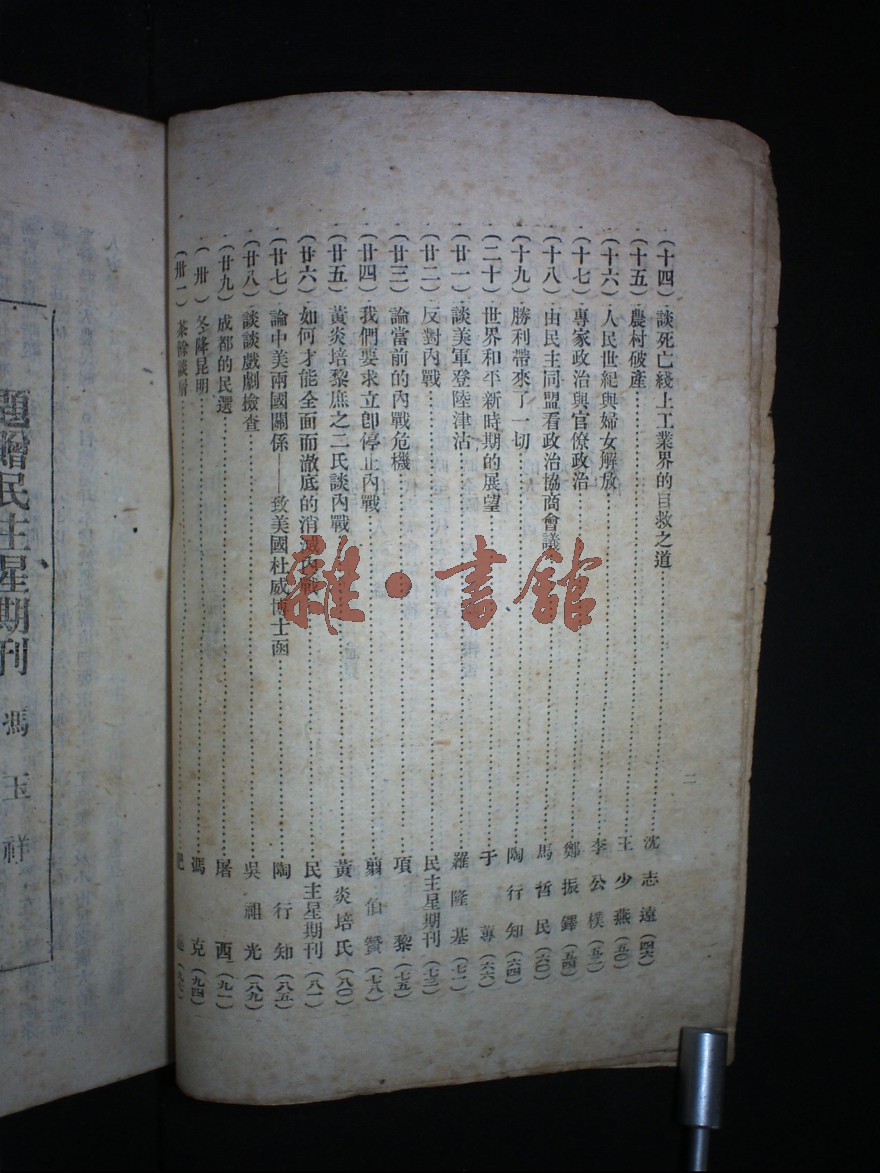 (十四) 談死亡綫上工業界的自救之道 沈志遠 (四六)
(十五) 農村破產 王少燕 (五〇)
(十六) 人民世紀與婦女解放 李公樸 (五二)
(十七) 專家政治與官僚政治 鄭振鐸 (五四)
(十八) 由民主同盟看政治協商會議 馬哲民 (六〇)
(十九) 勝利帶來了一切 陶行知 (六四)
(二十) 世界和平新時期的展望 于 (六六)
(廿一) 談美軍登陸津沽 羅隆基 (七一)
(廿二) 反對內戰 民主星期刊 (七三)
(廿三) 論當前的內戰危機 項黎 (七五)
(廿四) 我們要求立卽停止內戰 翦伯贊 (七八)
(廿五) 黃炎培黎庶之二氏談內戰 黃炎培氏 (八〇)
(廿六) 如何才能全面而澈底的消滅內戰 民主星期刊 (八一)
(廿七) 論中美兩國關係——致美國杜威博士函 陶行知 (八五)
(廿八) 談談戲劇檢查 吳祖光 (八九)
(廿九) 成都的民選 屠西 (九一)
(卅) 冬降昆明 馮克 (九四)
(卅一) 茶餘談屑
二
題贈民主星期刊
馮玉祥
雜·書館